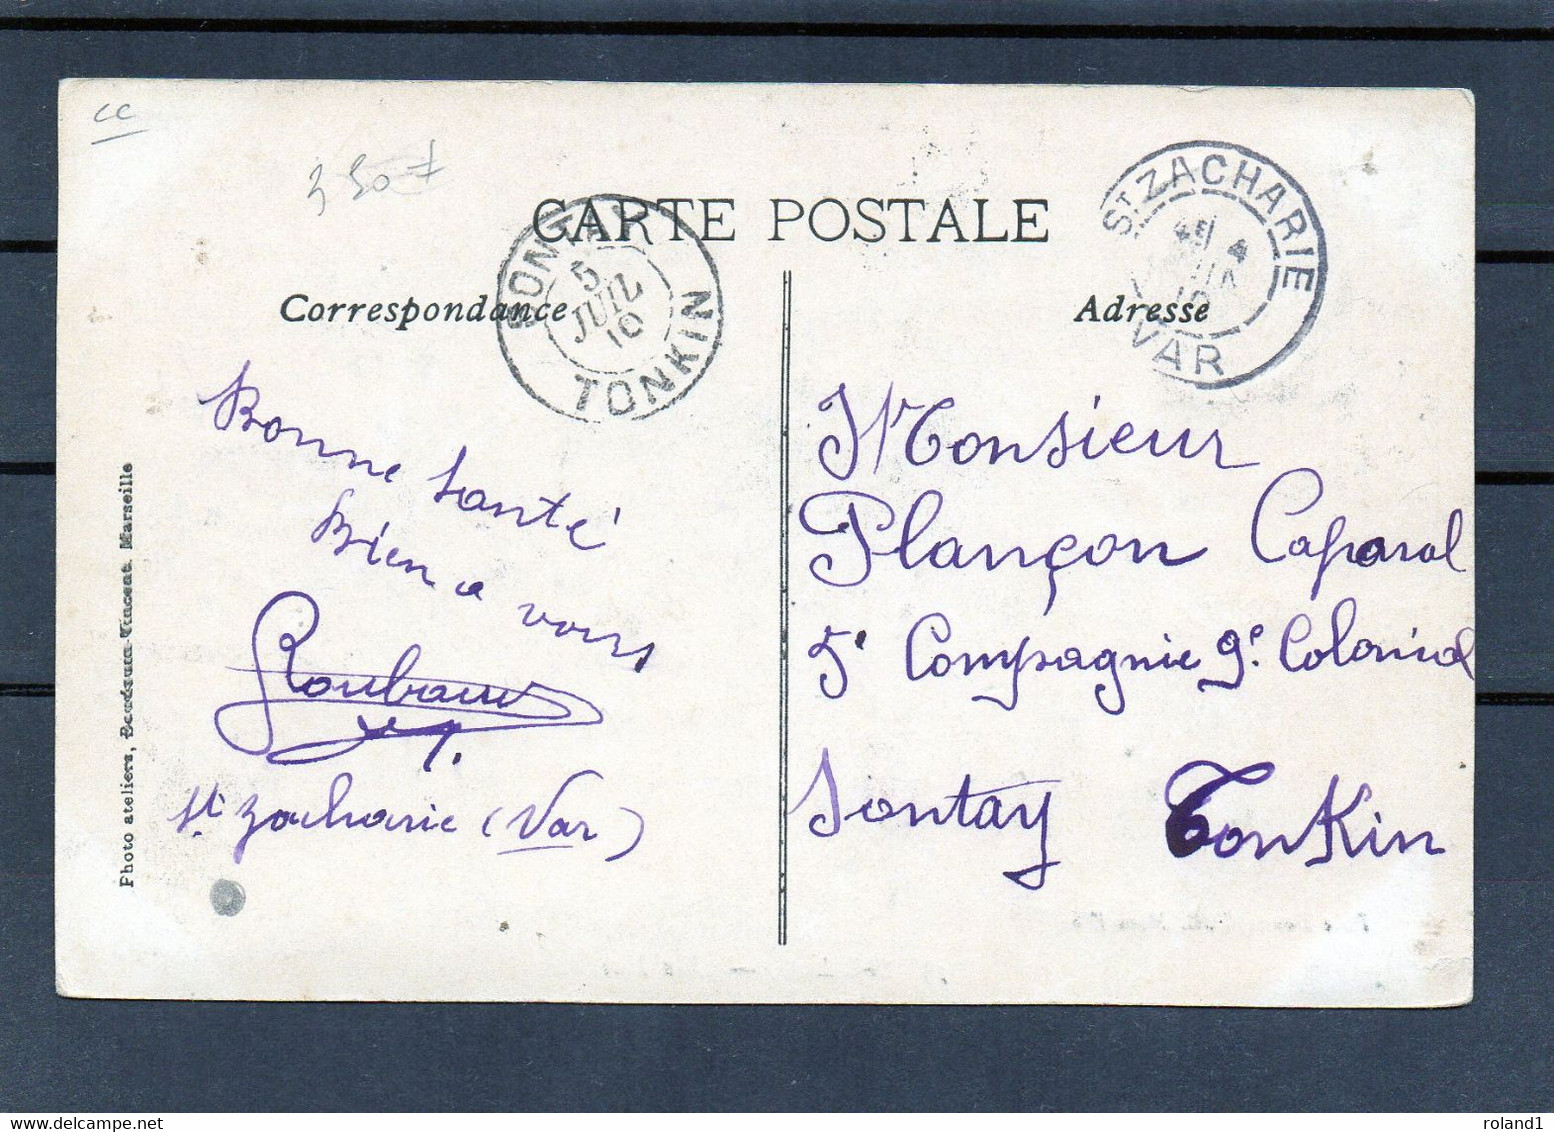 cc
3 50
CARTE POSTALE
Correspondance
Adresse
SONTAY
5
JUIL
10
TONKIN
ST ZACHARIE
4
10
VAR
Bonne Santé
Bien a vous
Roubaud
St Zacharie (Var)
Monsieur
Plançon Caporal
5e Compagnie 9e Colonial
Sontay Tonkin
Photo ateliers, Beaudouin-Vincent, Marseille
roland1